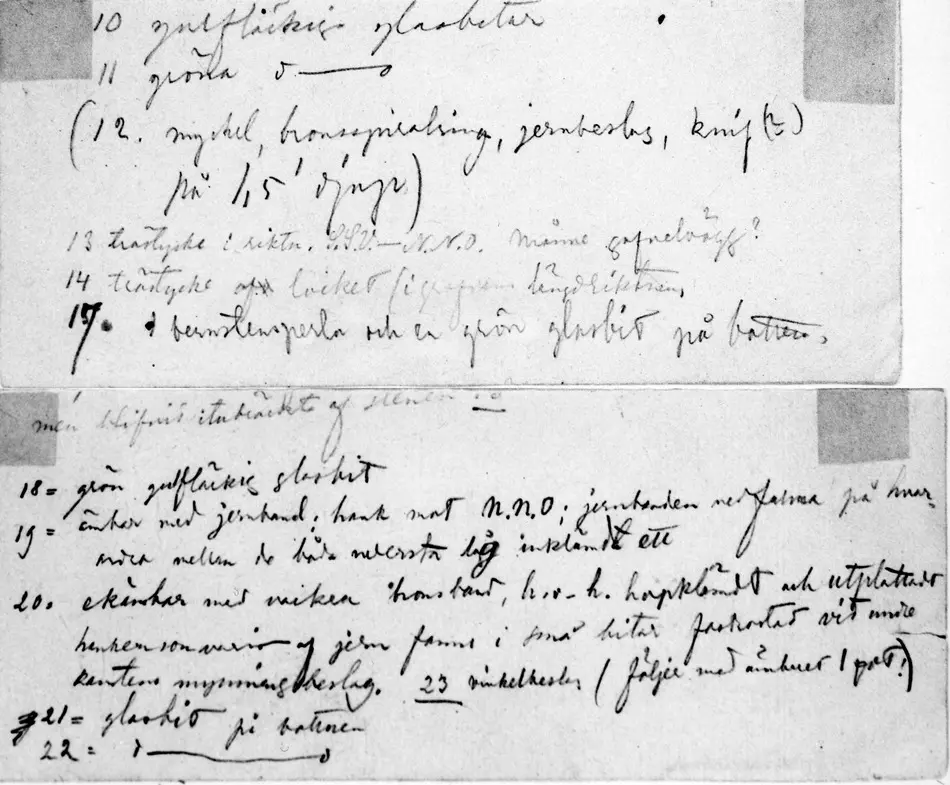 10 gulfläckig glasbitar
11 gröna d——o
(12. nyckel, bronsspiralring, jernbeslag, knif (?)
på 1,5' djup)
13 trästycke i riktn. S.S.V.—N.N.O. Månne gafvelvägg?
14 trästycke locket längdriktnen,
17. 1 bernstensperla och en grön glasbit på botten.
men af stenen 18
18 = grön gulfläckig glasbit
19 = ämbar med jernband; hank mot N.N.O; jernbanden nedfallna på hvar-
andra mellan de båda nedersta låg inklämdt ett
20. ekämbar med vacken bronsband, h. o. h. hopklämdt och utplattadt
hanken som varit af jern fanns i små bitar fastrostad vid undre
kanten mynningsbeslag. 23 vinkelbeslag (följer med ämbaret 1 part!)
21 = glasbit på bottnen
22 = d——o